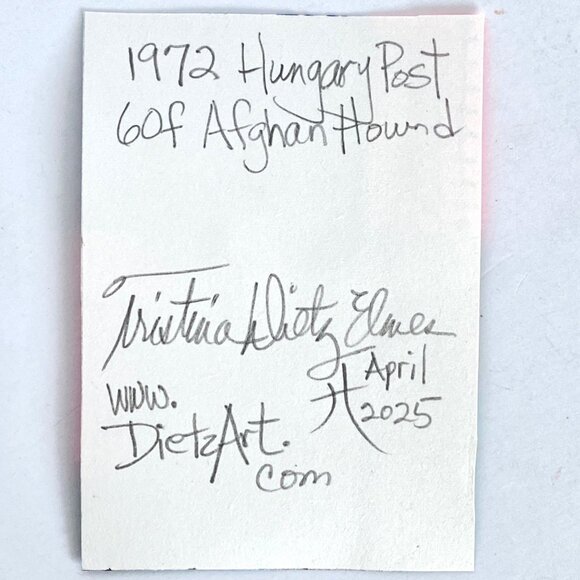 1972 Hungary Post
60f Afghan Hound
Tristina Dietz Elmes
www.
April
DietzArt.
2025
com